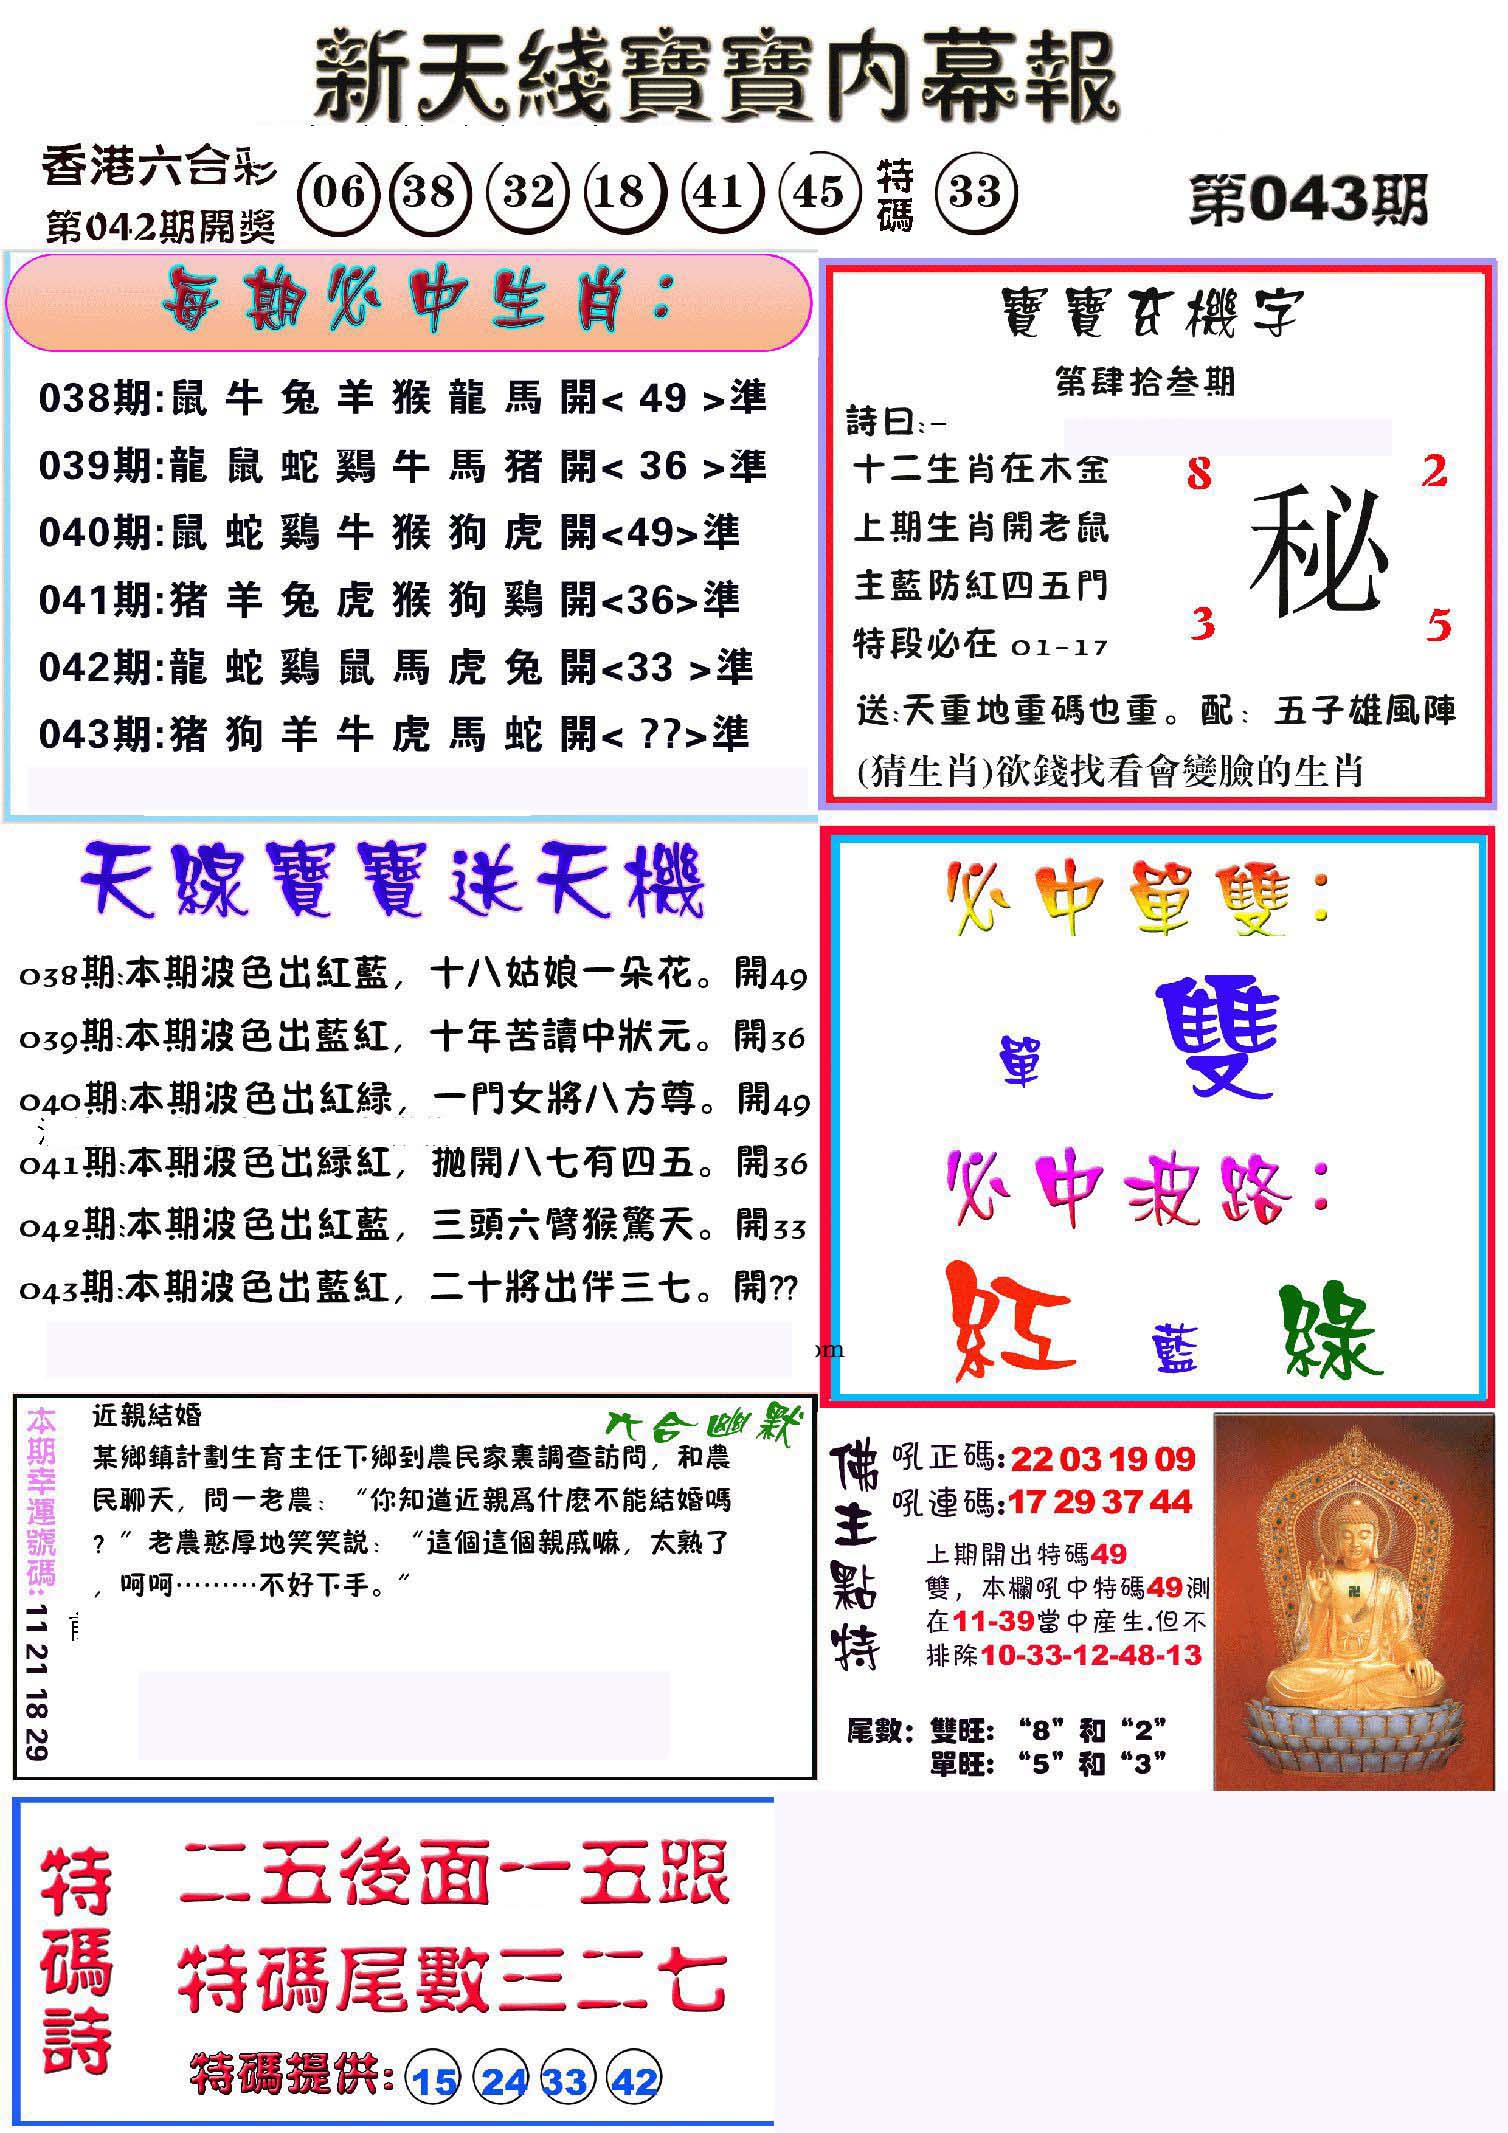 新天綫寶寶内幕報
香港六合彩
第042期開獎
06 38 32 18 41 45 特碼 33
第043期
每期必中生肖：
038期:鼠 牛 兔 羊 猴 龍 馬 開< 49 >準
039期:龍 鼠 蛇 鷄 牛 馬 猪 開< 36 >準
040期:鼠 蛇 鷄 牛 猴 狗 虎 開<49>準
041期:猪 羊 兔 虎 猴 狗 鷄 開<36>準
042期:龍 蛇 鷄 鼠 馬 虎 兔 開<33 >準
043期:猪 狗 羊 牛 虎 馬 蛇 開< ??>準
寶寶玄機字
第肆拾叁期
詩曰:-
十二生肖在木金
上期生肖開老鼠
主藍防紅四五門
特段必在 01-17
8 2
秘
3 5
送:天重地重碼也重。配：五子雄風陣
(猜生肖)欲錢找看會變臉的生肖
天線寶寶送天機
038期:本期波色出紅藍，十八姑娘一朵花。開49
039期:本期波色出藍紅，十年苦讀中狀元。開36
040期:本期波色出紅緑，一門女將八方尊。開49
041期:本期波色出緑紅，抛開八七有四五。開36
042期:本期波色出紅藍，三頭六臂猴驚天。開33
043期:本期波色出藍紅，二十將出伴三七。開??
om
必中單雙：
單 雙
必中波路：
紅 藍 綠
本期幸運號碼:11 21 18 29
六合幽默
近親結婚
某鄉鎮計劃生育主任下鄉到農民家裏調查訪問，和農
民聊天，問一老農：“你知道近親爲什麽不能結婚嗎
？”老農憨厚地笑笑説：“這個這個親戚嘛，太熟了
，呵呵………不好下手。”
佛主點特
吼正碼:22 03 19 09
吼連碼:17 29 37 44
上期開出特碼49
雙，本欄吼中特碼49測
在11-39當中産生.但不
排除10-33-12-48-13
尾數：雙旺：“8”和“2”
單旺：“5”和“3”
特碼詩
二五後面一五跟
特碼尾數三二七
特碼提供: 15 24 33 42